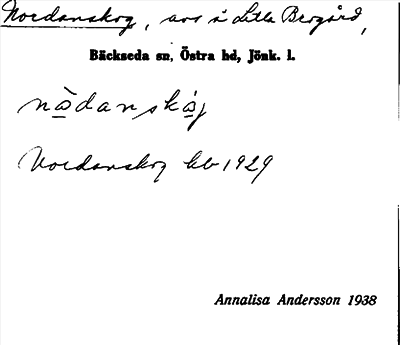 Nordanskog, avs å Lilla Bergård,
Bäckseda sn, Östra hd, Jönk. l.
nɑ̀danskɑ̀g
Nordanskog kb 1929
Annalisa Andersson 1938